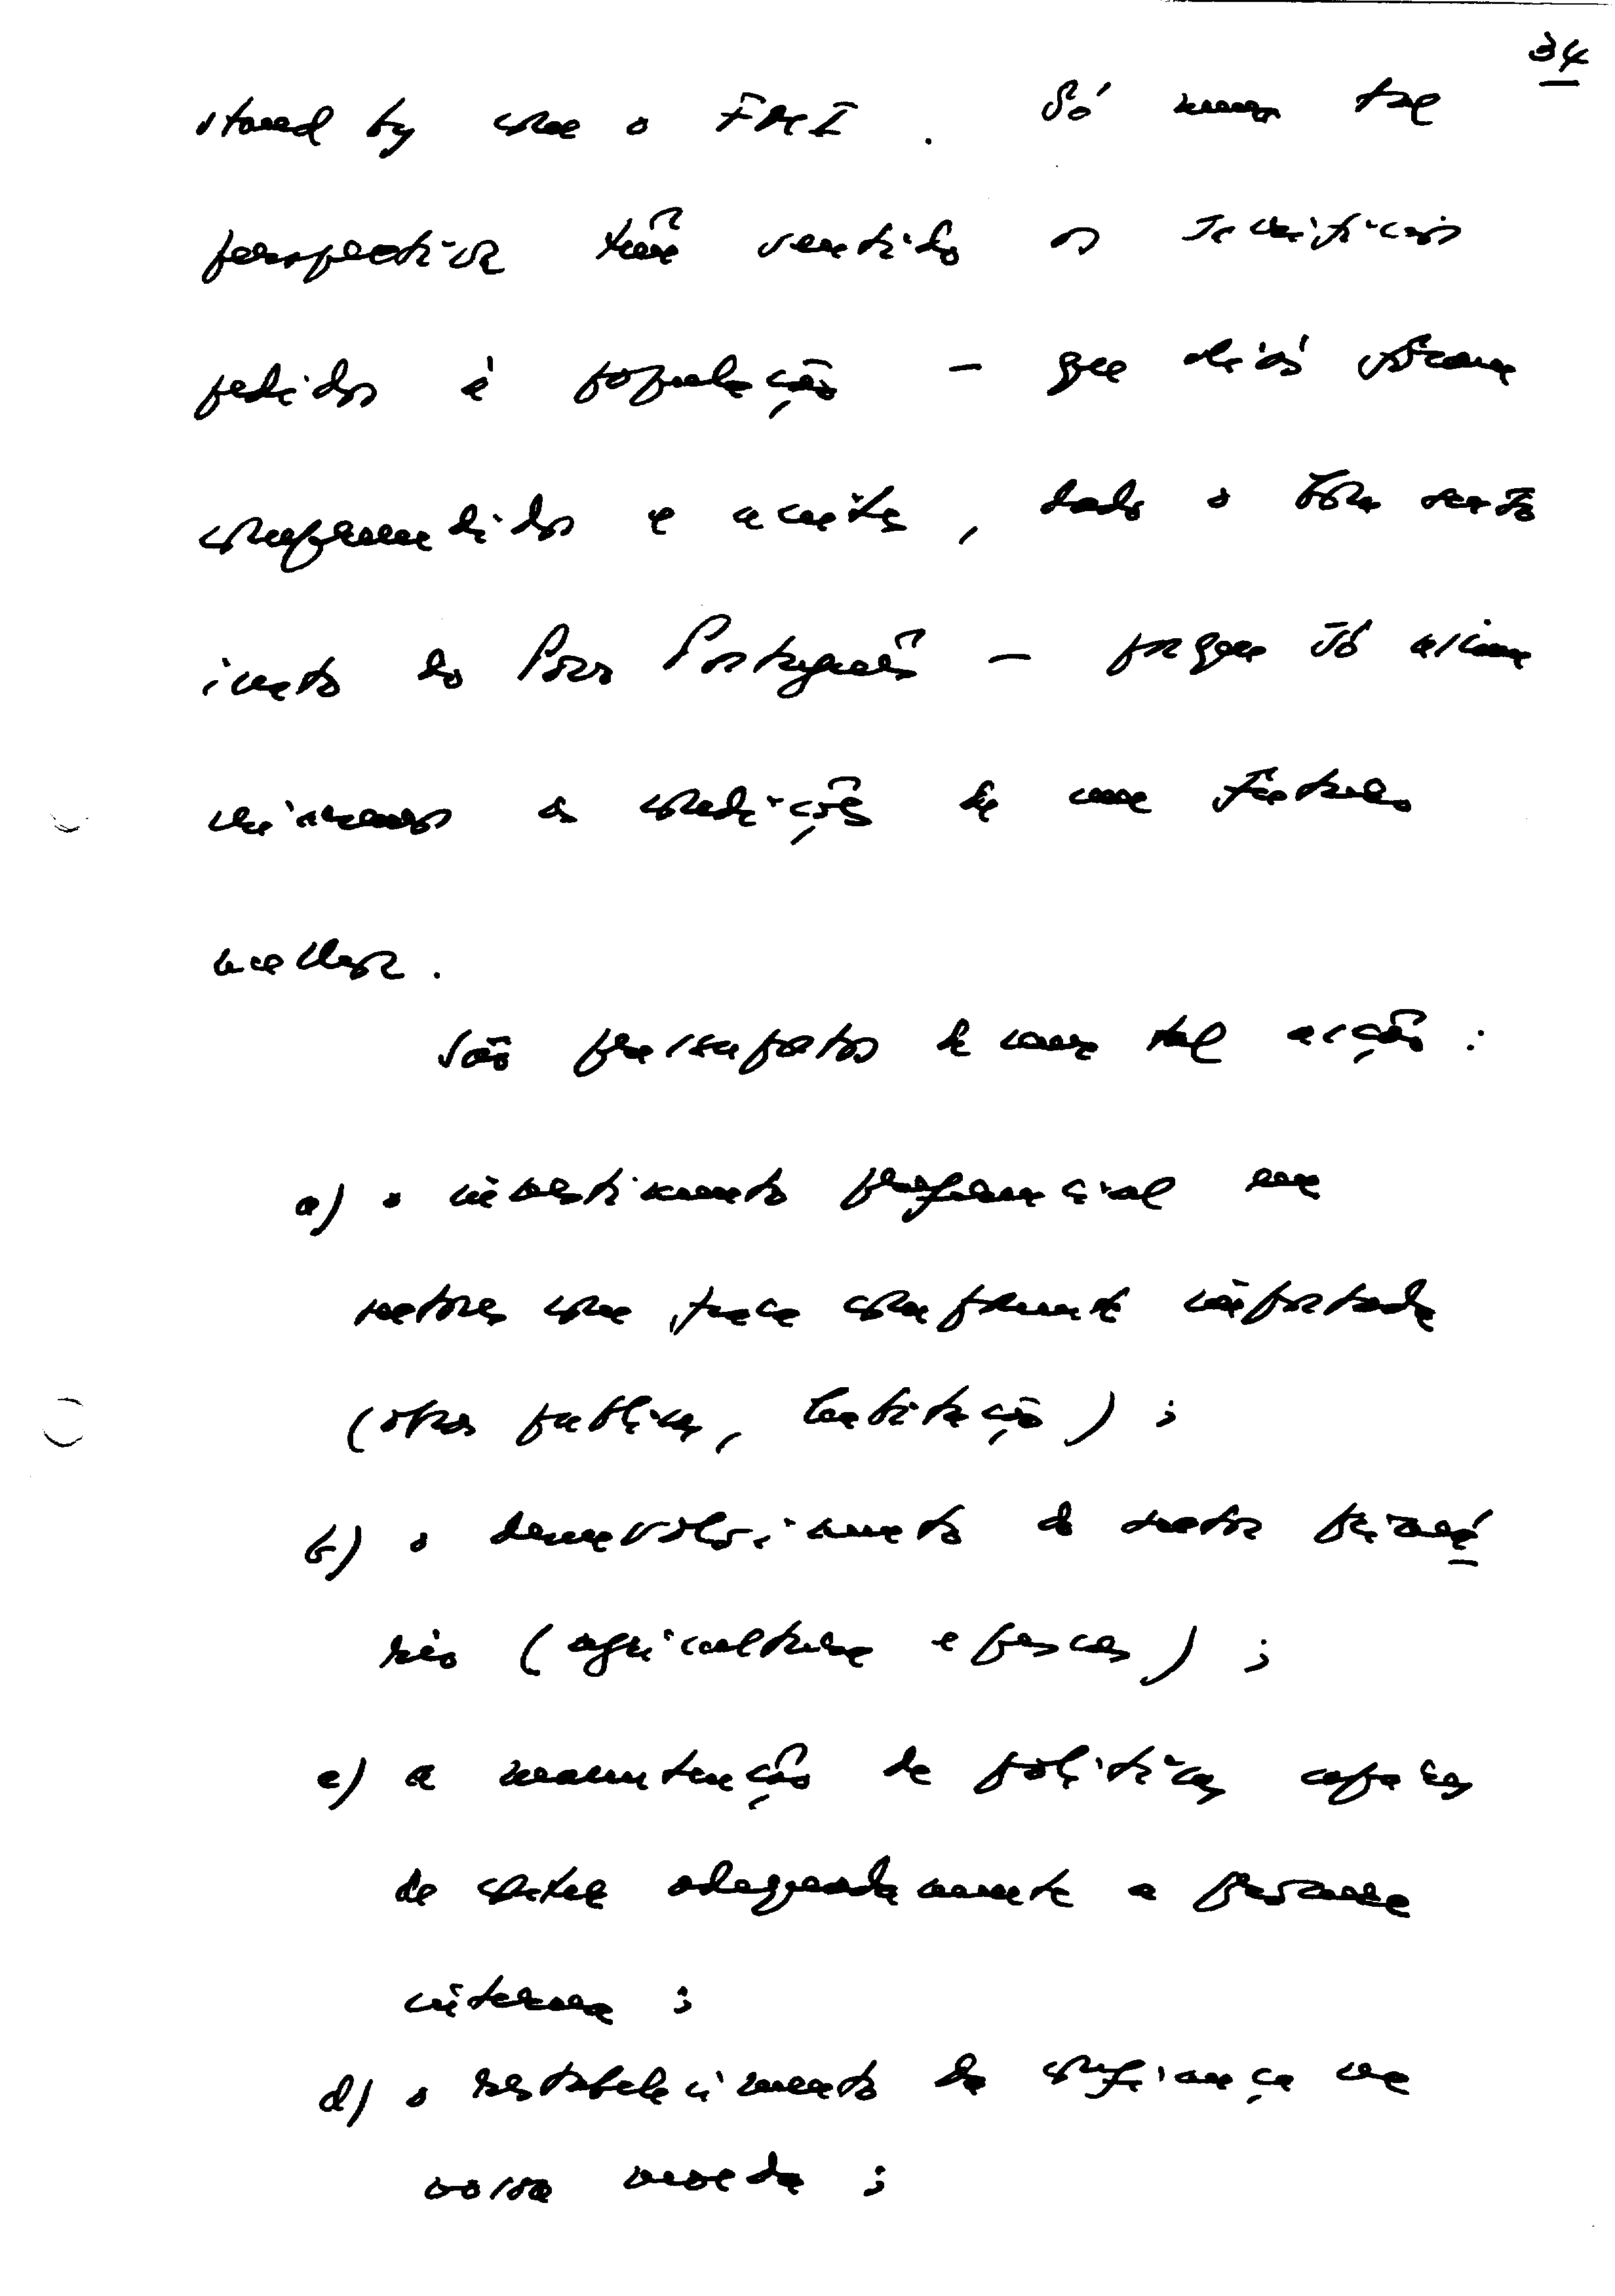 34
stand by com o FMI. Só numa tal
perspectiva têm sentido os sacrifícios
pedidos à população — que aliás foram
compreendidos e aceites, dado o bom sent
imento do Povo Português — porque só assim
as condições de um futuro
melhor.
São pressupostos de uma tal acção:
a) o investimento preferencial em
sectores com fraca componente importada
(obras públicas, habitação);
b) o desenvolvimento do sector primá
rio (agricultura e pescas);
c) a manutenção de políticas capazes
de conter adequadamente a procura
interna;
d) o restabelecimento da confiança na
nossa moeda;